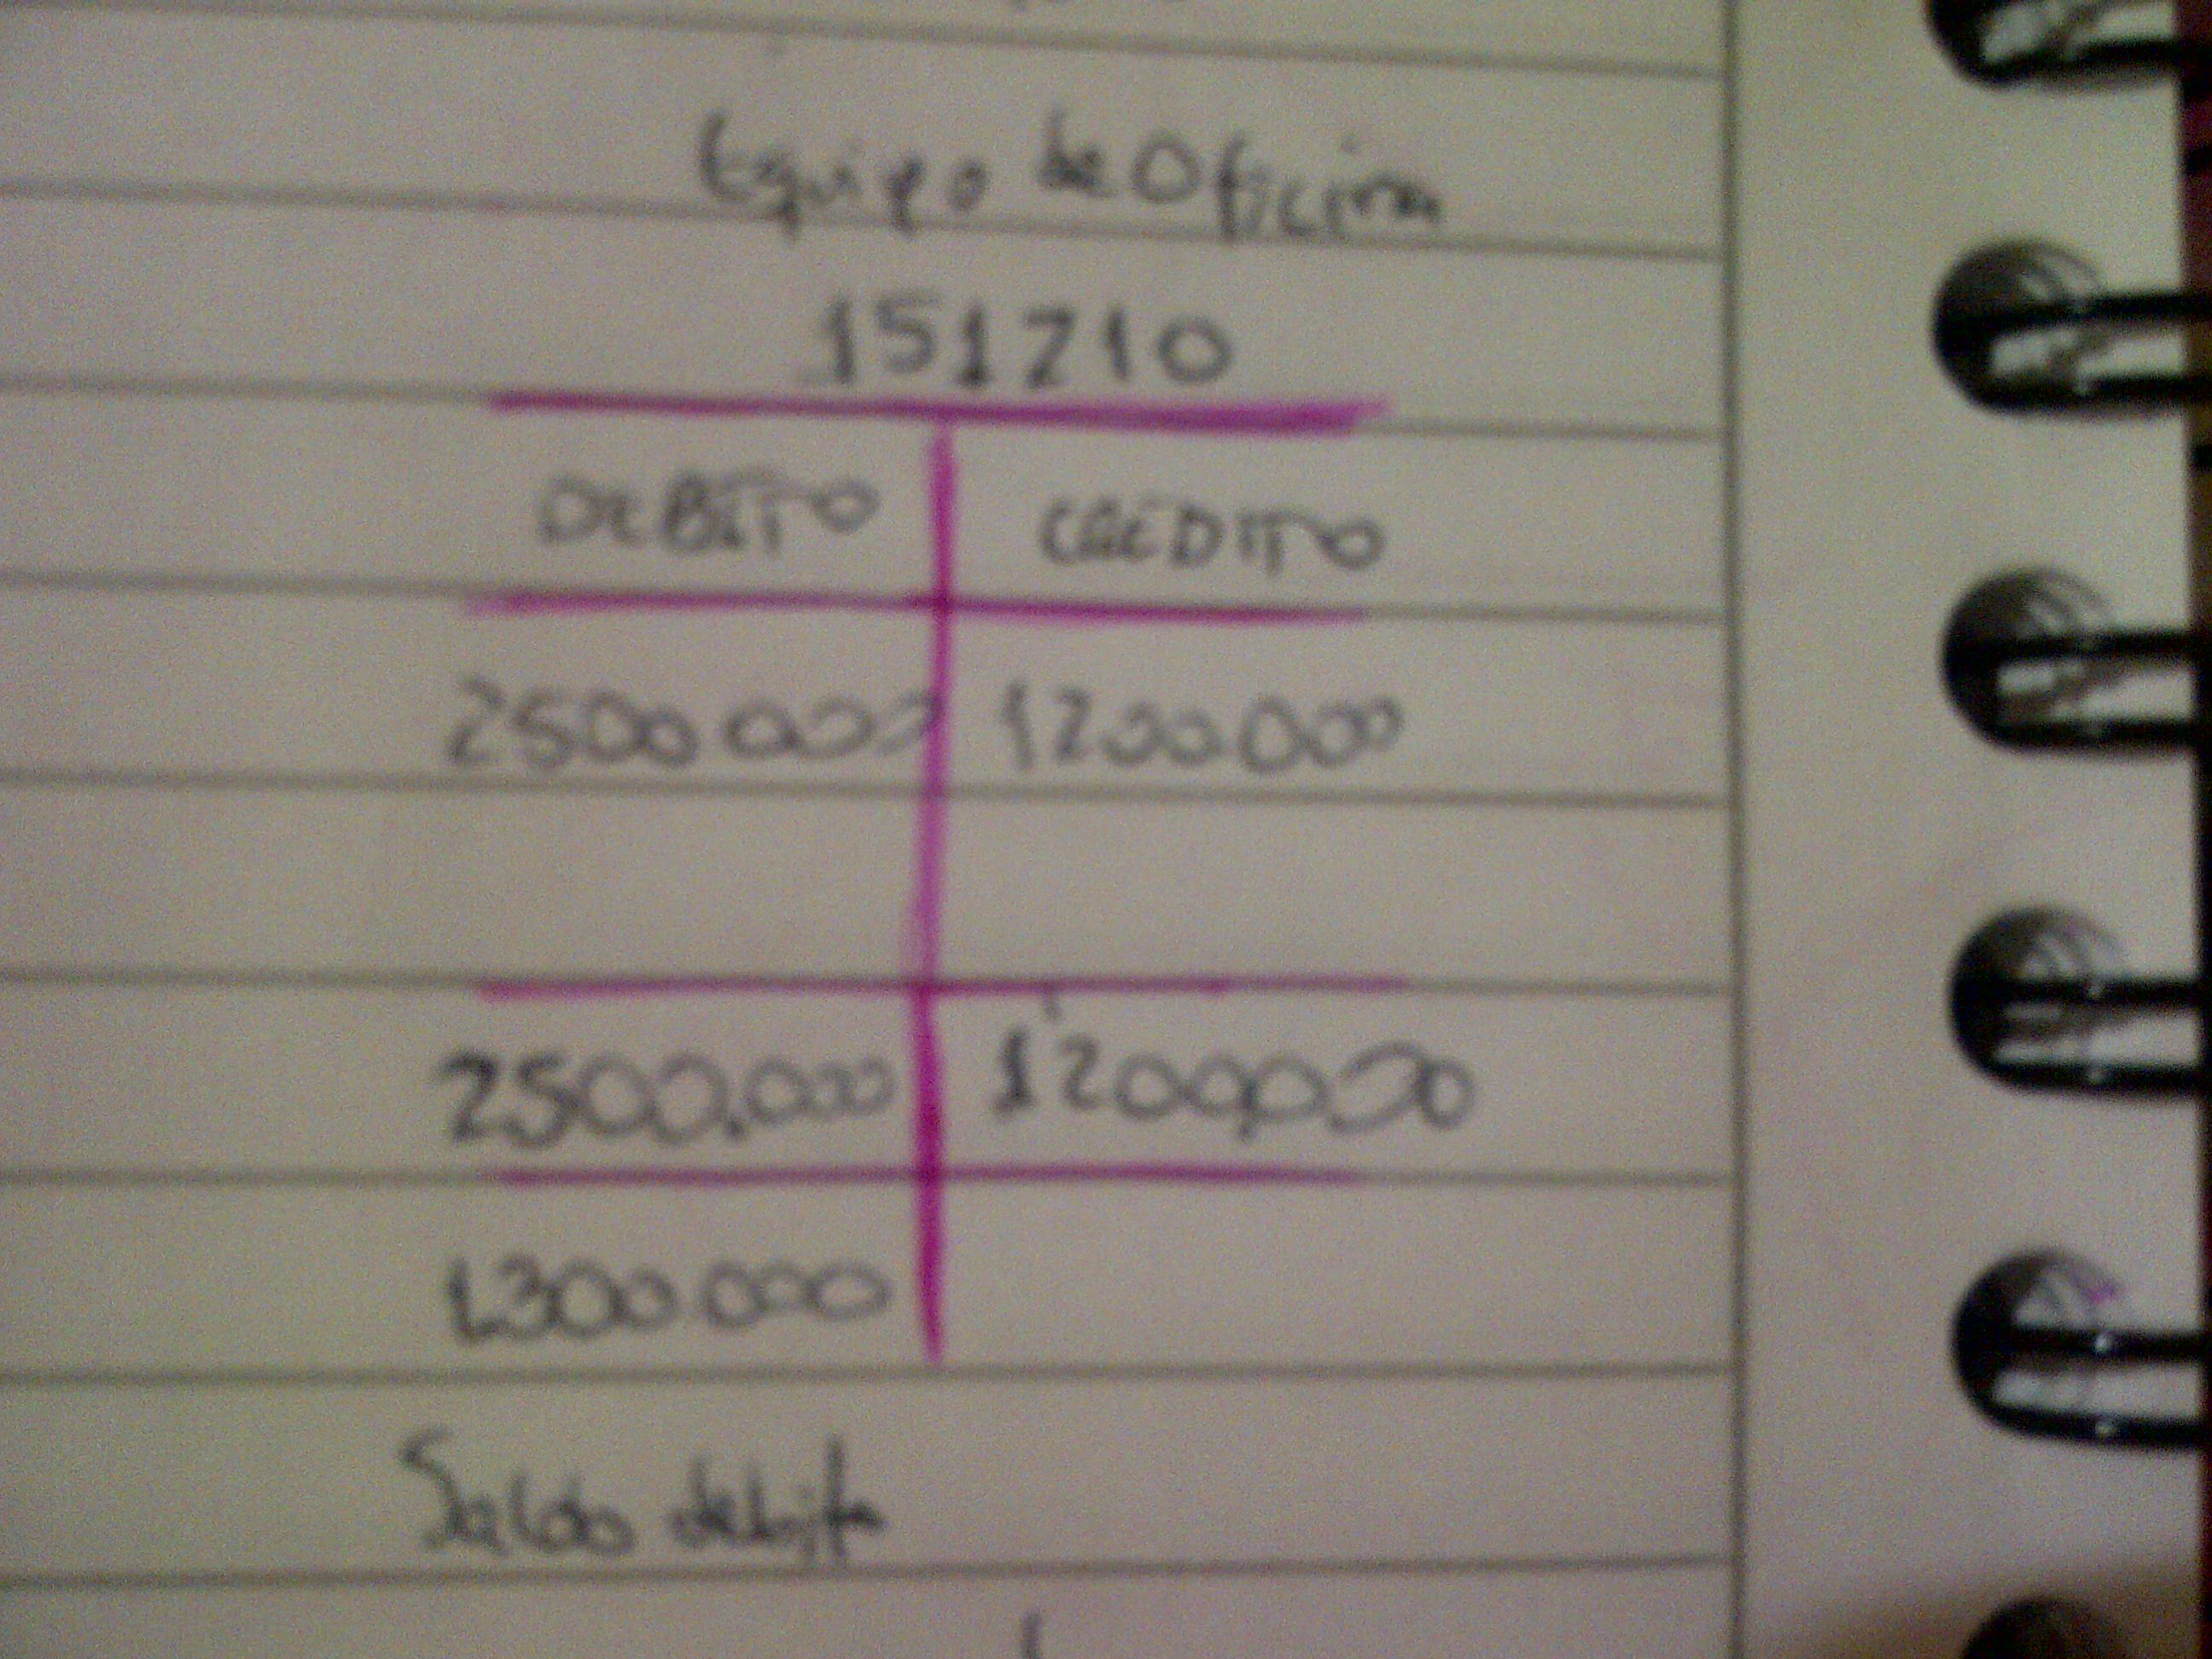 Equipo de Oficina
151210
DEBITO CREDITO
2500.000 1200.000
2500.000 1200,000
1.300.000
Saldo debito